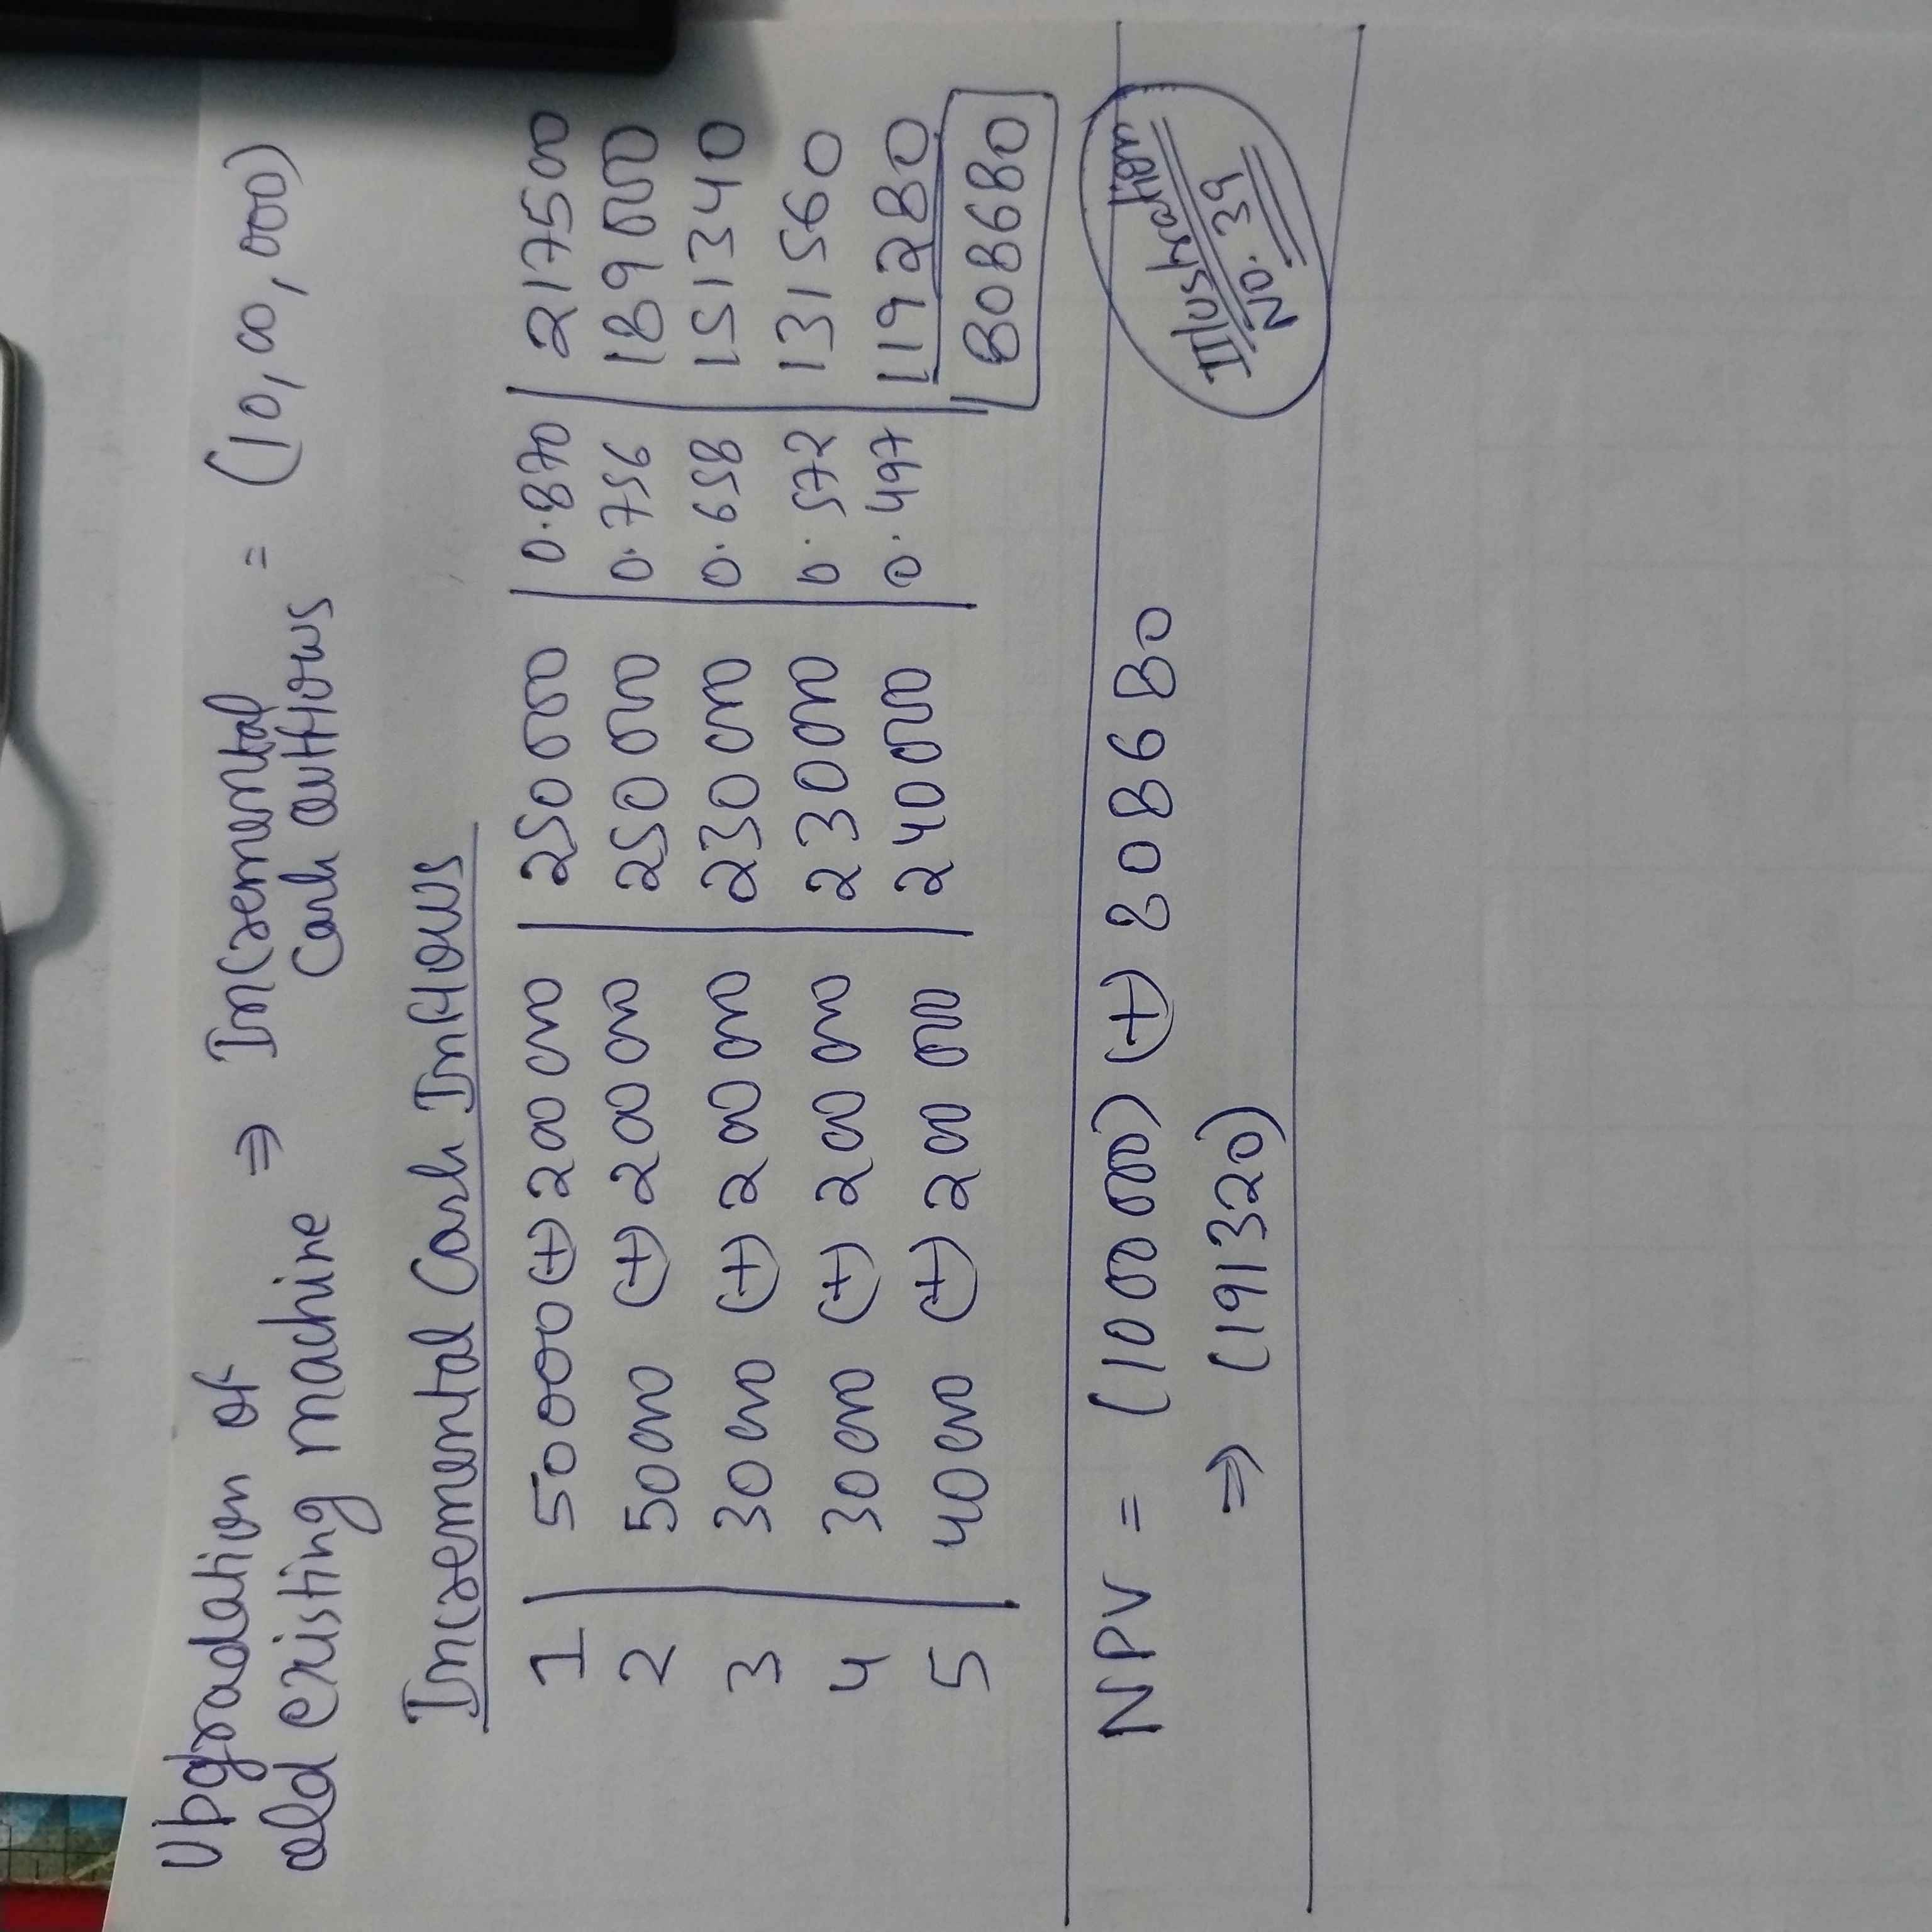 Upgradation of
old existing machine ⇒ Incremental
Cash outflows = (10,00,000)
Incremental Cash Inflows
1 | 50000 (+) 200000 | 250000 | 0.870 | 217500
2 | 50000 (+) 200000 | 250000 | 0.756 | 189000
3 | 30000 (+) 200000 | 230000 | 0.658 | 151340
4 | 30000 (+) 200000 | 230000 | 0.572 | 131560
5 | 40000 (+) 200000 | 240000 | 0.497 | 119280
808680
NPV = (1000000) (+) 808680
⇒ (191320)
Illustration
No. 39